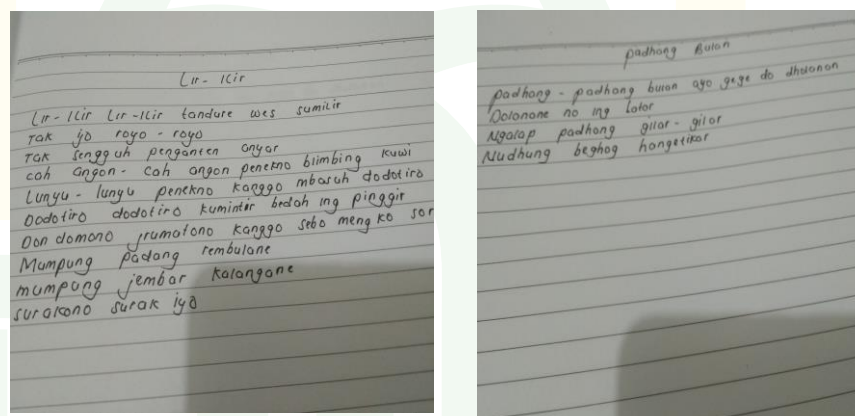 Lir-Ilir
Lir-Ilir Lir-Ilir tandure wes sumilir
Tak ijo royo-royo
Tak sengguh penganten anyar
cah angon-cah angon penekno blimbing kuwi
Lunyu-lunyu penekno kanggo mbasuh dodotiro
Dodotiro dodotiro kumintir bedah ing pinggir
Don domono jrumatono kanggo sebo mengko sor
Mumpung padang rembulane
mumpung jembar kalangane
surakono surak iyo
padhang Bulan
padhang-padhang bulan ayo gege do dholanan
Dolanane no ing lator
Ngalap padhang gilar-gilar
Nudhung beghog hangetikar